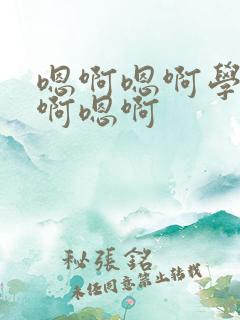 嗯啊嗯啊學
啊嗯啊
秘張銘
未经同意禁止转载